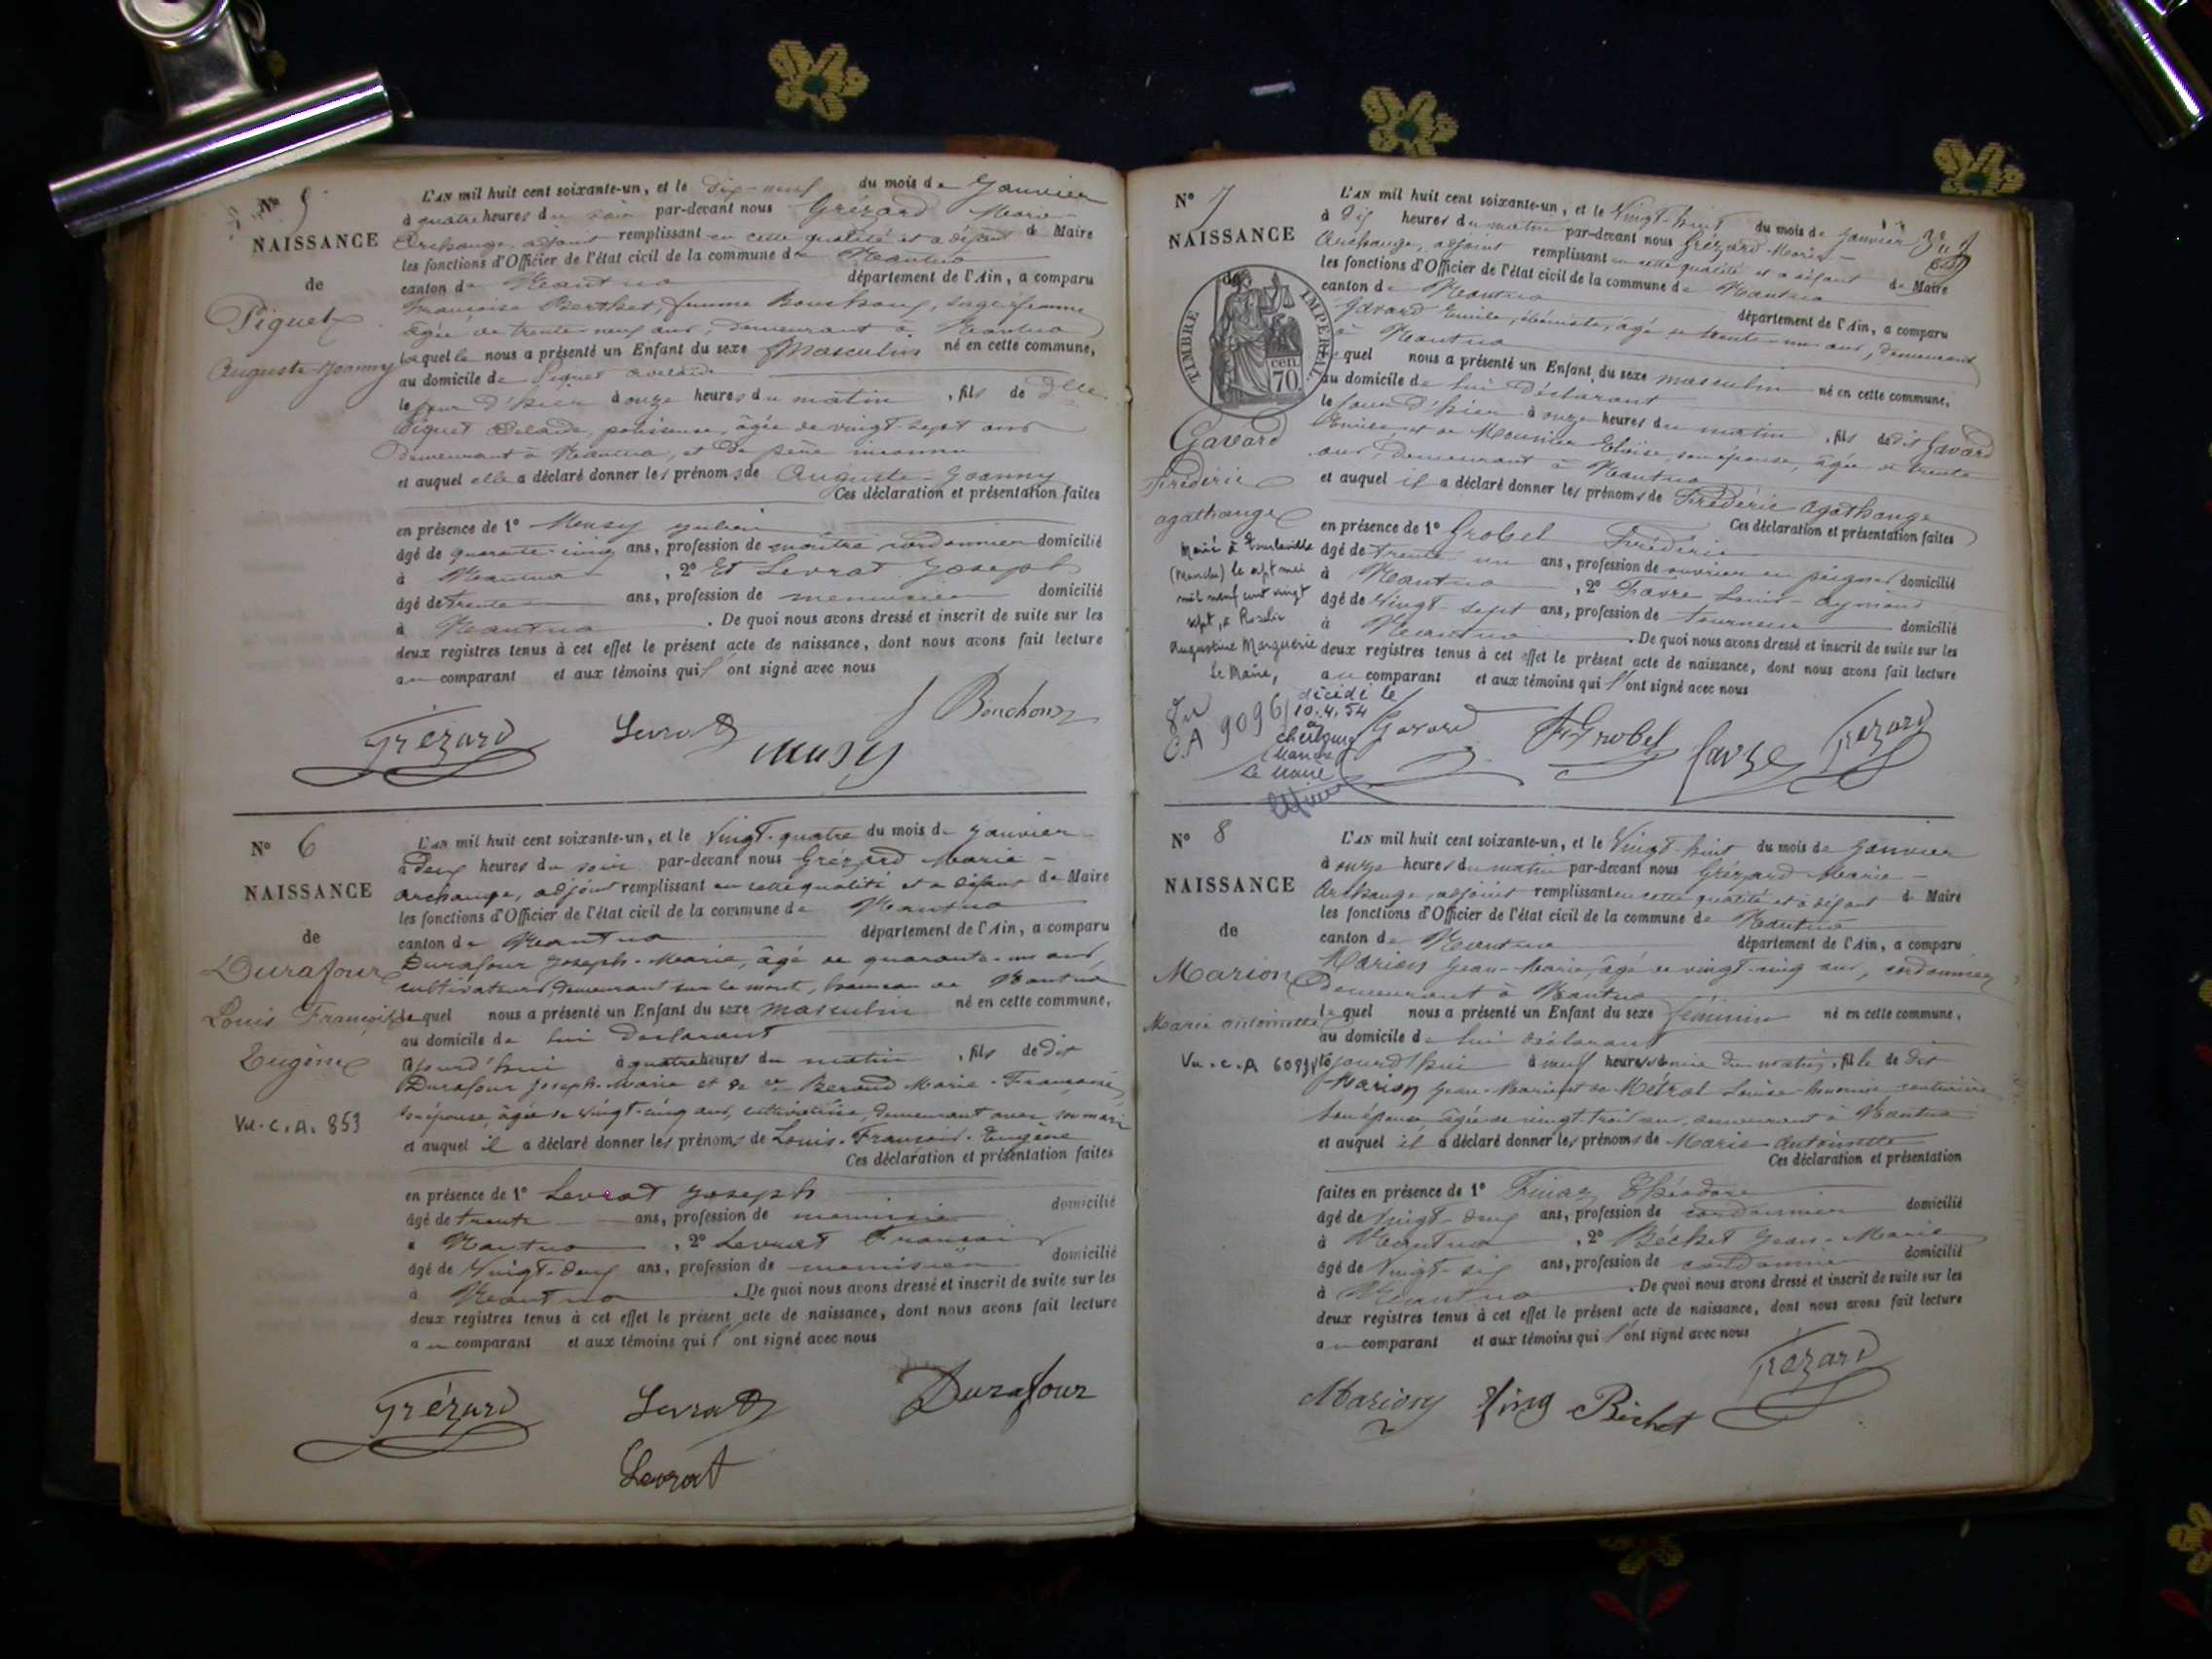 N° 5
NAISSANCE
de
Piquet
Auguste Joanny
L'AN mil huit cent soixante-un, et le dix-neuf du mois de Janvier
à quatre heures du soir par-devant nous Grézard Marie-
Archange, adjoint remplissant en cette qualité et à défaut de Maire
les fonctions d'Officier de l'état civil de la commune de Nantua
canton de Nantua département de l'Ain, a comparu
Françoise Berthet, femme Bouchoux, sage-femme
âgée de trente-neuf ans, demeurant à Nantua
laquelle nous a présenté un Enfant du sexe Masculin né en cette commune,
au domicile de Piquet Adelaïde
le jour d'hier à onze heures du matin, fils de Dlle
Piquet Adelaïde, polisseuse, âgée de vingt-sept ans
demeurant à Nantua, et de père inconnu
et auquel elle a déclaré donner les prénoms de Auguste-Joanny
Ces déclaration et présentation faites
en présence de 1° Musy Julien
âgé de quarante-cinq ans, profession de maître cordonnier domicilié
à Nantua, 2° Et Levrat Joseph
âgé de trente ans, profession de menuisier domicilié
à Nantua. De quoi nous avons dressé et inscrit de suite sur les
deux registres tenus à cet effet le présent acte de naissance, dont nous avons fait lecture
au comparant et aux témoins qui l'ont signé avec nous
f Bouchoux
Grézard Levrat Musy
N° 6
NAISSANCE
de
Durafour
Louis François
Eugène
Vu. C. A. 853
L'AN mil huit cent soixante-un, et le Vingt-quatre du mois de Janvier
à deux heures du soir par-devant nous Grézard Marie-
Archange, adjoint remplissant en cette qualité et à défaut de Maire
les fonctions d'Officier de l'état civil de la commune de Nantua
canton de Nantua département de l'Ain, a comparu
Durafour Joseph-Marie, âgé de quarante-un ans,
cultivateur, demeurant sur le mont, hameau de Nantua
lequel nous a présenté un Enfant du sexe masculin né en cette commune,
au domicile de lui Déclarant
Ajourd'hui à quatre heures du matin, fils de dit
Durafour Joseph-Marie et de Beraud Marie-Françoise
son épouse, âgée de vingt-cinq ans, cultivatrice, demeurant avec son mari
et auquel il a déclaré donner les prénoms de Louis-François-Eugène
Ces déclaration et présentation faites
en présence de 1° Levrat Joseph
âgé de trente ans, profession de menuisier domicilié
à Nantua, 2° Levrat François
âgé de Vingt-deux ans, profession de menuisier domicilié
à Nantua. De quoi nous avons dressé et inscrit de suite sur les
deux registres tenus à cet effet le présent acte de naissance, dont nous avons fait lecture
au comparant et aux témoins qui l'ont signé avec nous
Grézard Levrat Durafour
Levrat
N° 7
NAISSANCE
de
TIMBRE IMPÉRIAL
70 cen.
Gavard
Frédéric
agathange
Marié à Tourlaville
(Manche) le sept mai
mil neuf cent vingt
sept, à Rosalie
Augustine Marguerie
Le Maire,
Vu
C.A 9096
décédé le
10.4.54
à
Cherbourg
Manche
Le Maire
L'AN mil huit cent soixante-un, et le Vingt-huit du mois de Janvier
à dix heures du matin par-devant nous Grézard Marie-
Archange, adjoint remplissant en cette qualité et à défaut de Maire
les fonctions d'Officier de l'état civil de la commune de Nantua
canton de Nantua département de l'Ain, a comparu
Gavard Emile, ébéniste, âgé de trente-un ans, demeurant
à Nantua
lequel nous a présenté un Enfant du sexe masculin né en cette commune,
au domicile de lui Déclarant
le jour d'hier à onze heures du matin, fils de dit Gavard
Emile et de Mounier Eloïse son épouse, âgée de trente
ans, demeurant à Nantua
et auquel il a déclaré donner les prénoms de Frédéric Agathange
Ces déclaration et présentation faites
en présence de 1° Grobel Frédéric
âgé de trente-un ans, profession de ouvrier en peignes domicilié
à Nantua, 2° Favre Louis-Aymond
âgé de Vingt-sept ans, profession de tourneur domicilié
à Nantua. De quoi nous avons dressé et inscrit de suite sur les
deux registres tenus à cet effet le présent acte de naissance, dont nous avons fait lecture
au comparant et aux témoins qui l'ont signé avec nous
Gavard F Grobel favre Grézard
N° 8
NAISSANCE
de
Marion
Marie antoinette
Vu. C. A
L'AN mil huit cent soixante-un, et le Vingt-huit du mois de Janvier
à onze heures du matin par-devant nous Grézard Marie-
Archange, adjoint remplissant en cette qualité et à défaut de Maire
les fonctions d'Officier de l'état civil de la commune de Nantua
canton de Nantua département de l'Ain, a comparu
Marion Jean-Marie, âgé de vingt-cinq ans, cordonnier
demeurant à Nantua
lequel nous a présenté un Enfant du sexe féminin né en cette commune,
au domicile de lui déclarant
jourd'hui à neuf heures du matin, fille de dit
Marion Jean-Marie et de Métral Louise couturière
son épouse, âgée de vingt-trois ans, demeurant à Nantua
et auquel il a déclaré donner les prénoms de Marie-Antoinette
Ces déclaration et présentation
faites en présence de 1° Théodore
âgé de vingt-deux ans, profession de cordonnier domicilié
à Nantua, 2° Béchet Jean-Marie
âgé de Vingt-six ans, profession de cordonnier domicilié
à Nantua. De quoi nous avons dressé et inscrit de suite sur les
deux registres tenus à cet effet le présent acte de naissance, dont nous avons fait lecture
au comparant et aux témoins qui l'ont signé avec nous
Marion Béchet Grézard